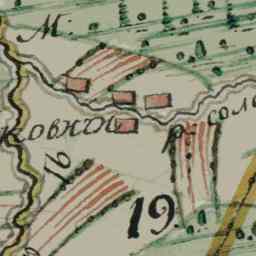 М.
ковхов
р. соло
16
19.